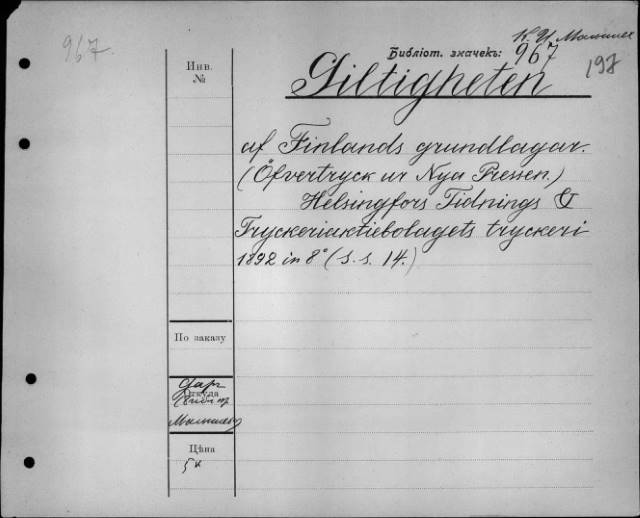 967.
К. И.
Библіот. значекъ: 967
197
Giltigheten
Инв.
№
af Finlands grundlagar.
(Öfvertryck ur Nya Pressen.)
Helsingfors Tidnings &
Tryckeriaktiebolagets tryckeri
1892 in 8° (s. s. 14.)
По заказу
Откуда
Цѣна
5 к